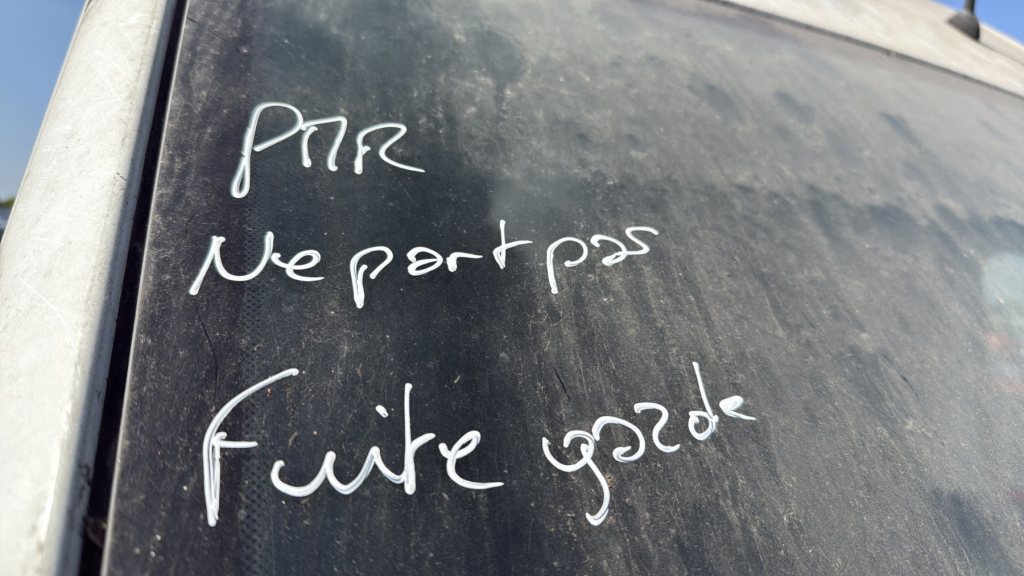 PMR
Ne part pas
Fuite gazde